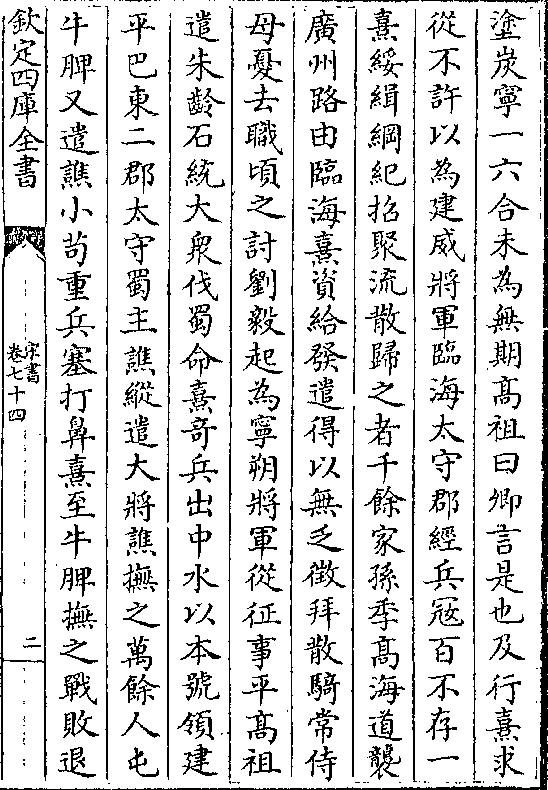 塗炭寧一六合未為無期髙祖曰卿言是也及行熹求
從不許以為建威將軍臨海太守郡經兵冦百不存一
熹綏緝綱紀招聚流散歸之者千餘家孫季髙海道襲
廣州路由臨海熹資給發遣得以無乏徴拜散騎常侍
母憂去職頃之討劉毅起為寧朔將軍從征事平髙祖
遣朱齡石統大衆伐蜀命熹竒兵出中水以本號領建
平巴東二郡太守蜀主譙縱遣大將譙撫之萬餘人屯
牛脾又遣譙小茍重兵塞打鼻熹至牛脾撫之戰敗退
欽定四庫全書
宋書
卷七十四
二